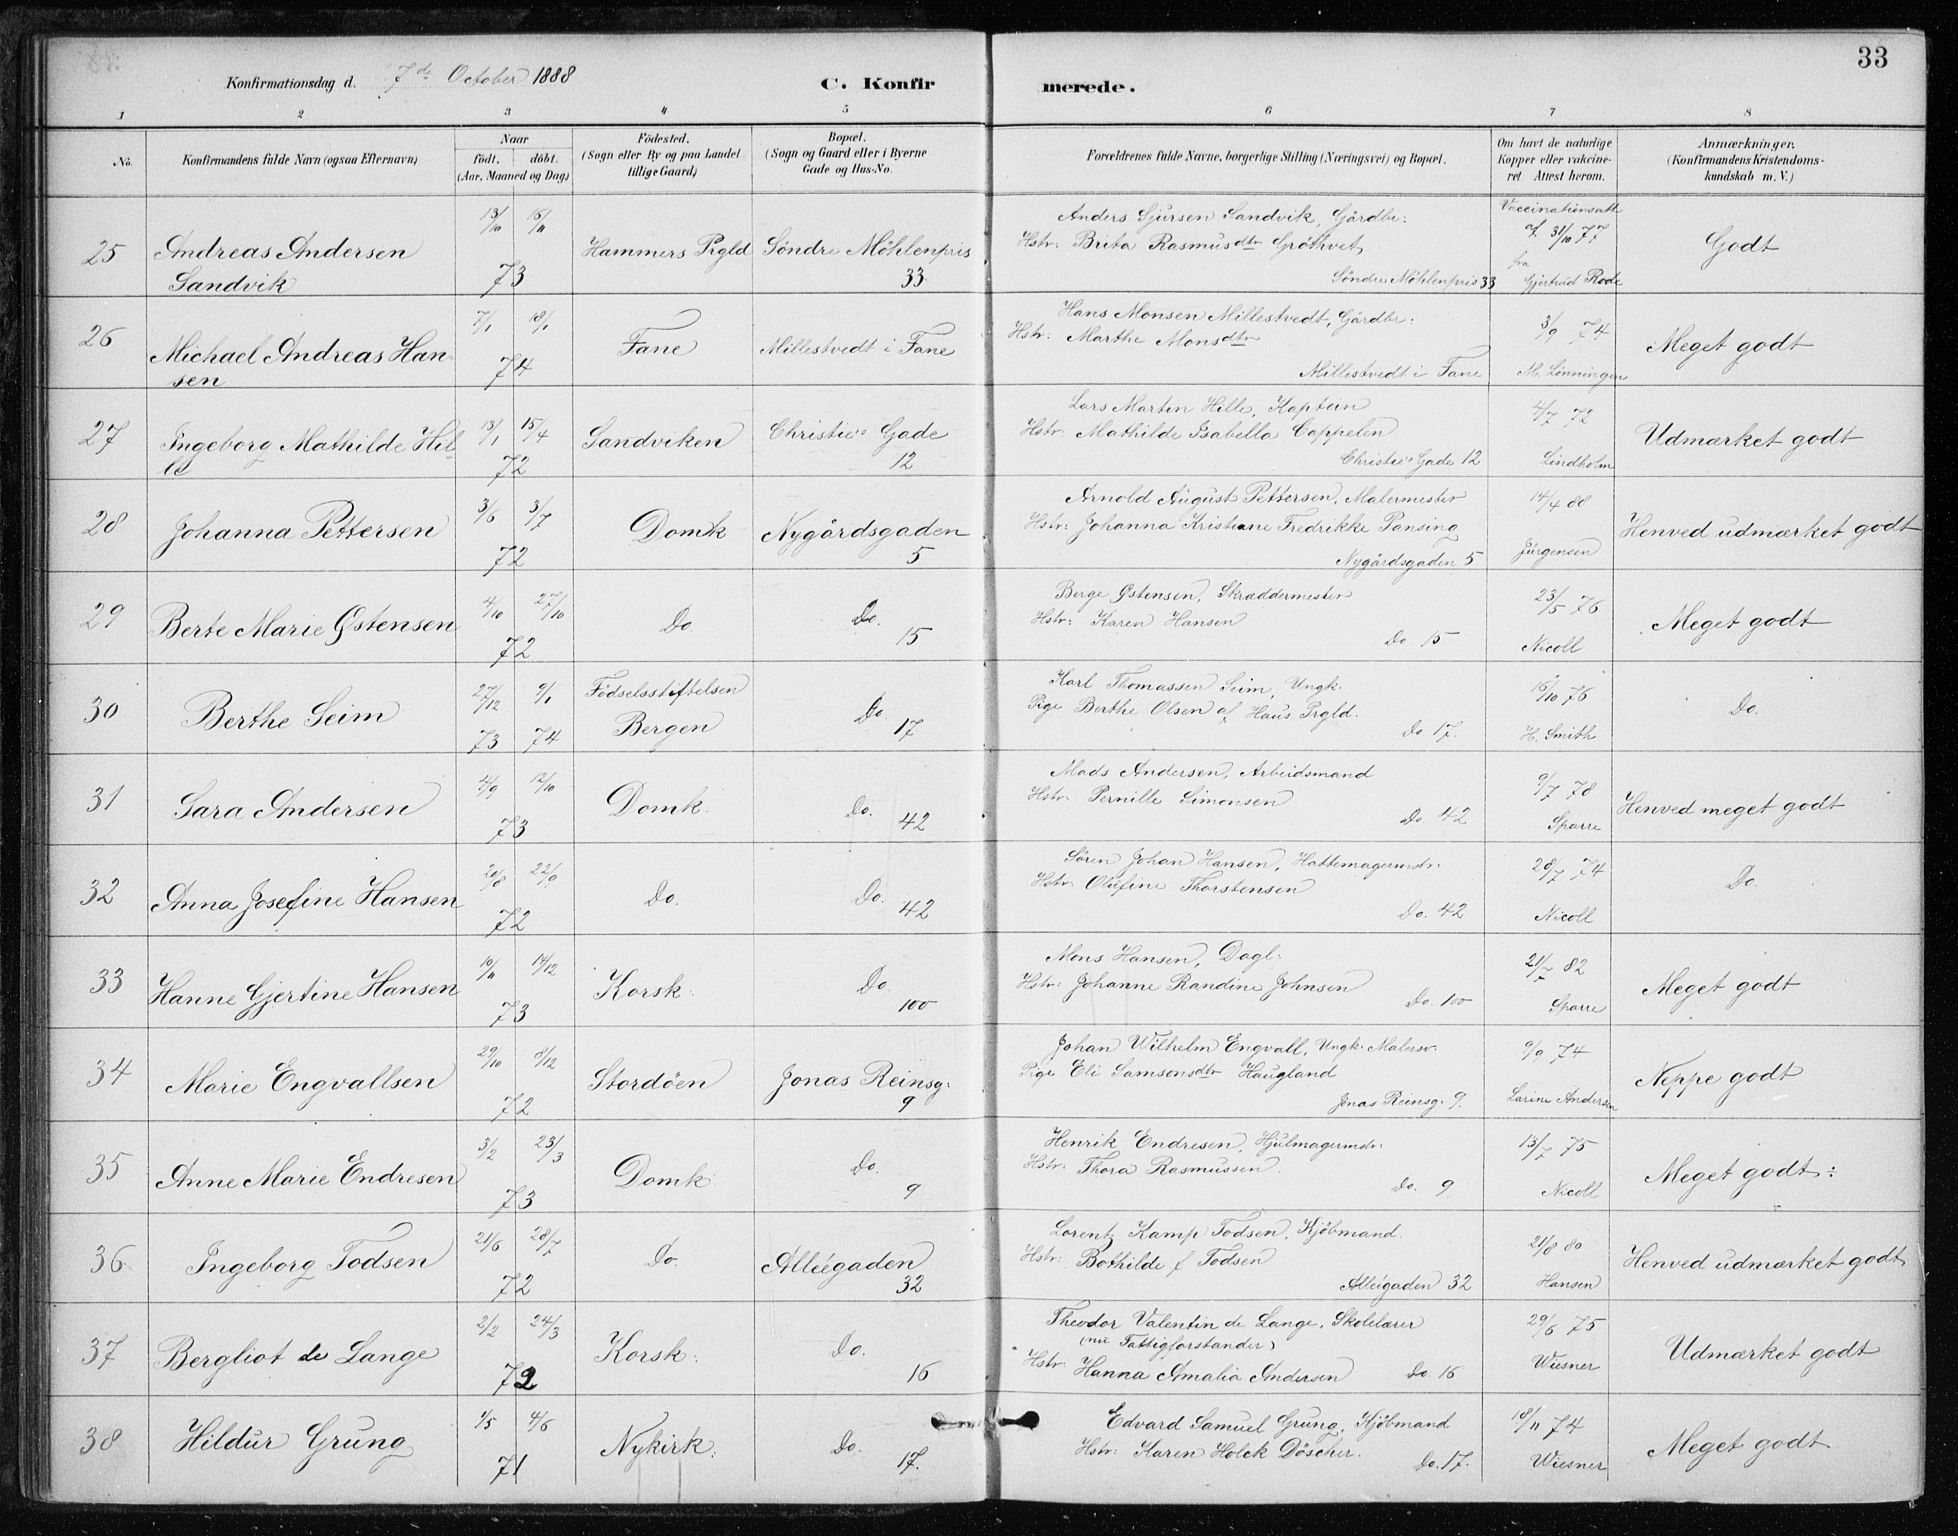 33
Konfirmationsdag d. 7de October 1888
C. Konfir merede.
1 2 3 4 5 6 7 8
No. Konfirmandens fulde Navn (ogsaa Efternavn) Naar födt. döbt. (Aar, Maaned og Dag) Födested. (Sogn eller By og paa Landet tillige Gaard) Bopæl. (Sogn og Gaard eller i Byerne Gade og Hus-No. Forældrenes fulde Navne, borgerlige Stilling (Næringsvei) og Bopæl. Om havt de naturlige Kopper eller vakcineret. Attest herom. Anmærkninger. (Konfirmandens Kristendomskundskab m. V.)
13/10 Anders Sjursen Sandvik, Gårdbr: Vaccinationsatt
25 Andreas Andersen Hammers Prgld Søndre Möhlenpris Hstr: Brita Rasmusdtr Gröthvet f. 31/10 77 Godt
Sandvik 73 33 Söndre Möhlenpris 33 fra Gjertrud Rode
7/1 18/1 Hans Monsen Millestvedt, Gårdbr:
26 Michael Andreas Han- Fane Millestvedt i Fane Hstr: Marthe Monsdtr 3/9 74 Meget godt
sen 74 Millestvedt i Fane M. Lönningen
13/1 15/4 Lars Martin Hille, Kaptein 4/7 72
27 Ingeborg Mathilde Hil- Sandviken Christie's Gade Hstr: Mathilde Isabella Cappelen Udmærket godt
le 72 12 Christie's Gade 12 Lindholm
3/6 3/7 Arnold August Pettersen, Malermester 14/4 88
28 Johanna Pettersen Domk Nygårdsgaden Hstr: Johanna Kristiane Fredrikke Pansing Henved udmærket godt
72 5 Nygårdsgaden 5 Jürgensen
4/10 27/10 Berge Østensen, Skræddermester 23/5 76
29 Berte Marie Østensen Do Do. Hstr: Karen Hansen Meget godt
72 15 Do 15 Nicoll
27/12 9/1 Födselsstiftelsen Karl Thomassen Seim, Ungk. 16/10 76
30 Berthe Seim Bergen Do Pige Berthe Olsen af Haus Prgld. Do.
73 74 17 Do 17. H. Smith
4/9 12/10 Mads Andersen, Arbeidsmand 9/7 78
31 Sara Andersen Domk. Do. Hstr: Pernille Simonsen Henved meget godt
73 42 Do 42 Sparre
20/8 22/9 Sören Johan Hansen, Hattemagermstr: 28/7 74
32 Anna Josefine Hansen Do. Do. Hstr: Olufine Thorstensen Do
72 42 Do. 42 Nicoll
10/11 14/12 Mons Hansen, Dagl: 21/7 82
33 Hanne Gjertine Hansen Korsk: Do Hstr: Johanne Randine Johnsen Meget godt
73 100 Do. 100 Sparre
29/10 8/12 Johan Wilhelm Engvall, Ungk. Malersv. 9/9 74
34 Marie Engvallsen Stordöen Jonas Reinsg: Pige Eli Samsonsdtr Haugland Neppe godt
72 9 Jonas Reinsg: 9. Larine Andersen
3/2 23/3 Henrik Endresen, Hjulmagermstr: 13/7 75
35 Anne Marie Endresen Domk Do Hstr: Thora Rasmussen. Meget godt:
73 9 Do. 9 Nicoll
21/6 28/7 Lorentz Kamp Todsen, Kjöbmand. 21/8 80
36 Ingeborg Todsen Do. Alléegaden Hstr: Bothilde f Todsen Henved udmærket godt
72 32 Alléegaden 32 Hansen
2/2 24/3 Theodor Valentin de Lange, Skolelærer 29/6 75
37 Bergliot de Lange Korsk: Do. (nu Fattigforstander) Udmærket godt
72 16 Hstr: Hanna Amalia Andersen Do. 16 Wiesner
1/5 4/6 Edvard Samuel Grung, Kjöbmand 18/11 74
38 Hildur Grung Nykirk: Do. Hstr: Karen Holck Döscher. Meget godt
71 17. Do. 17. Wiesner